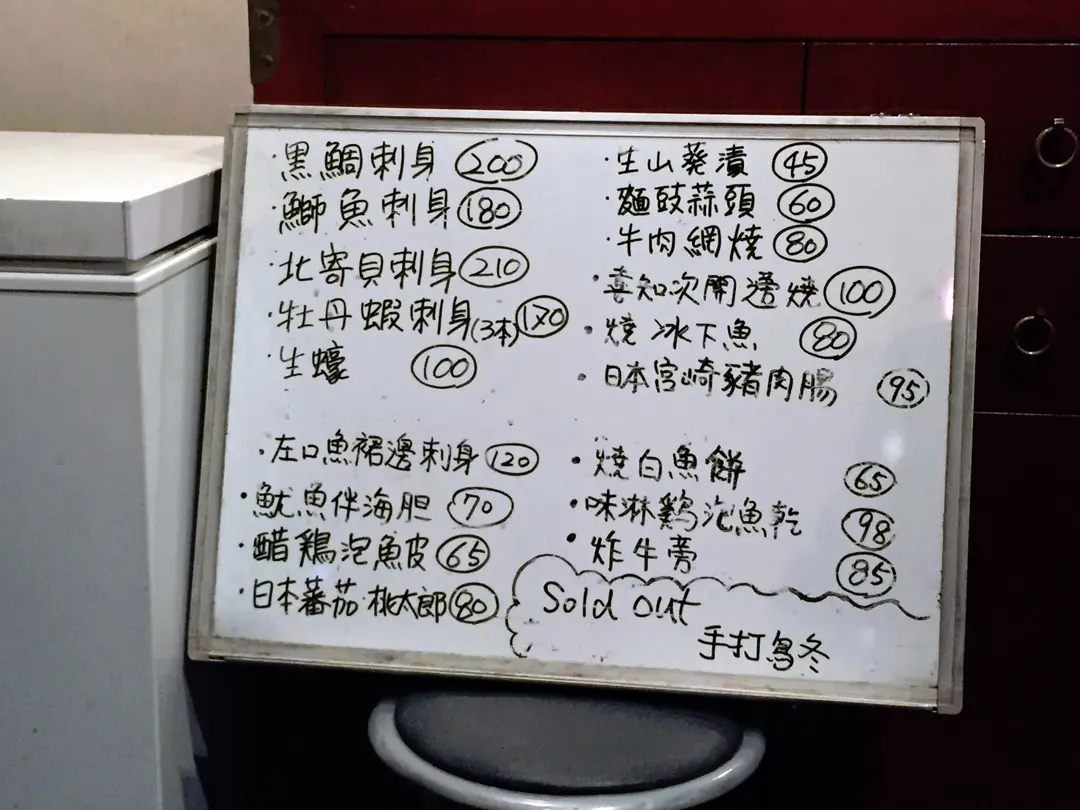 ·黒鯛刺身 200
·鰤魚刺身 180
·北寄貝刺身 210
·牡丹蝦刺身(3本) 170
·生蠔 100
·左口魚裙邊刺身 120
·魷魚伴海胆 70
·醋鶏泡魚皮 65
·日本蕃茄桃太郎 80
·生山葵漬 45
·麵豉蒜頭 60
·牛肉網燒 80
·喜知次開邊燒 100
·燒冰下魚 80
·日本宮崎豬肉腸 95
·燒白魚餅 65
·味淋鶏泡魚乾 98
·炸牛蒡 85
Sold out
手打烏冬